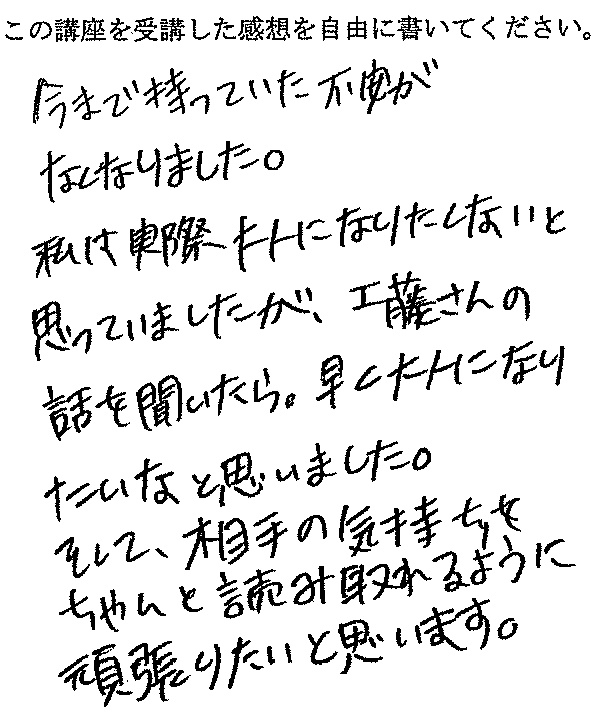 この講座を受講した感想を自由に書いてください。
今まで持っていた不安が
なくなりました。
私は実際大人になりたくないと
思っていましたが、工藤さんの
話を聞いたら。早く大人になり
たいなと思いました。
そして、相手の気持ちを
ちゃんと読み取れるように
頑張りたいと思います。